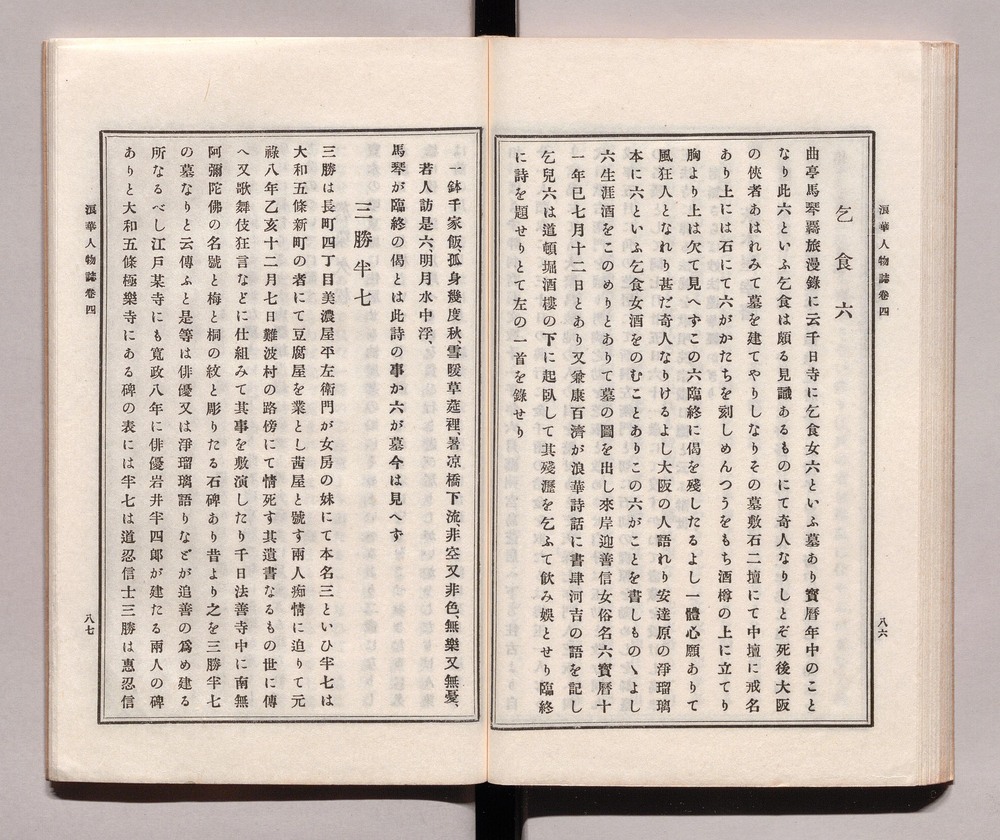 浪華人物誌卷四
八六
乞食六
曲亭馬琴羇旅漫錄に云千日寺に乞食女六といふ墓あり寶曆年中のこと
なり此六といふ乞食は頗る見識あるものにて奇人なりしとぞ死後大阪
の俠者あはれみて墓を建てやりしなりその墓敷石二壇にて中壇に戒名
あり上には石にて六がかたちを刻しめんつうをもち酒樽の上に立てり
胸より上は欠て見へずこの六臨終に偈を殘したるよし一體心願ありて
風狂人となれり甚だ奇人なりけるよし大阪の人語れり安達原の淨瑠璃
本に六といふ乞食女酒をのむことありこの六がことを書しものヽよし
六生涯酒をこのめりとありて墓の圖を出し來岸迎善信女俗名六寶曆十
一年巳七月十二日とあり又兼康百濟が浪華詩話に書肆河吉の語を記し
乞兒六は道頓堀酒樓の下に起臥して其殘瀝を乞ふて飲み娛とせり臨終
に詩を題せりとて左の一首を錄せり
一鉢千家飯、孤身幾度秋雪暖草莚裡、暑凉橋下流、非空又非色、無樂又無憂、
若人訪是六、明月水中浮、
馬琴が臨終の偈とは此詩の事か六が墓今は見へず
三勝半七
三勝は長町四丁目美濃屋平左衛門が女房の妹にて本名三といひ半七は
大和五條新町の者にて豆腐屋を業とし茜屋と號す兩人痴情に迫りて元
祿八年乙亥十二月七日難波村の路傍にて情死す其遺書なるもの世に傳
へ又歌舞伎狂言などに仕組みて其事を敷演したり千日法善寺中に南無
阿彌陀佛の名號と梅と桐の紋と彫りたる石碑あり昔より之を三勝半七
の墓なりと云傳ふと是等は俳優又は淨瑠璃語りなどが追善の爲め建る
所なるべし江戸某寺にも寬政八年に俳優岩井半四郎が建たる兩人の碑
ありと大和五條極樂寺にある碑の表には半七は道忍信士三勝は惠忍信
浪華人物誌卷四
八七